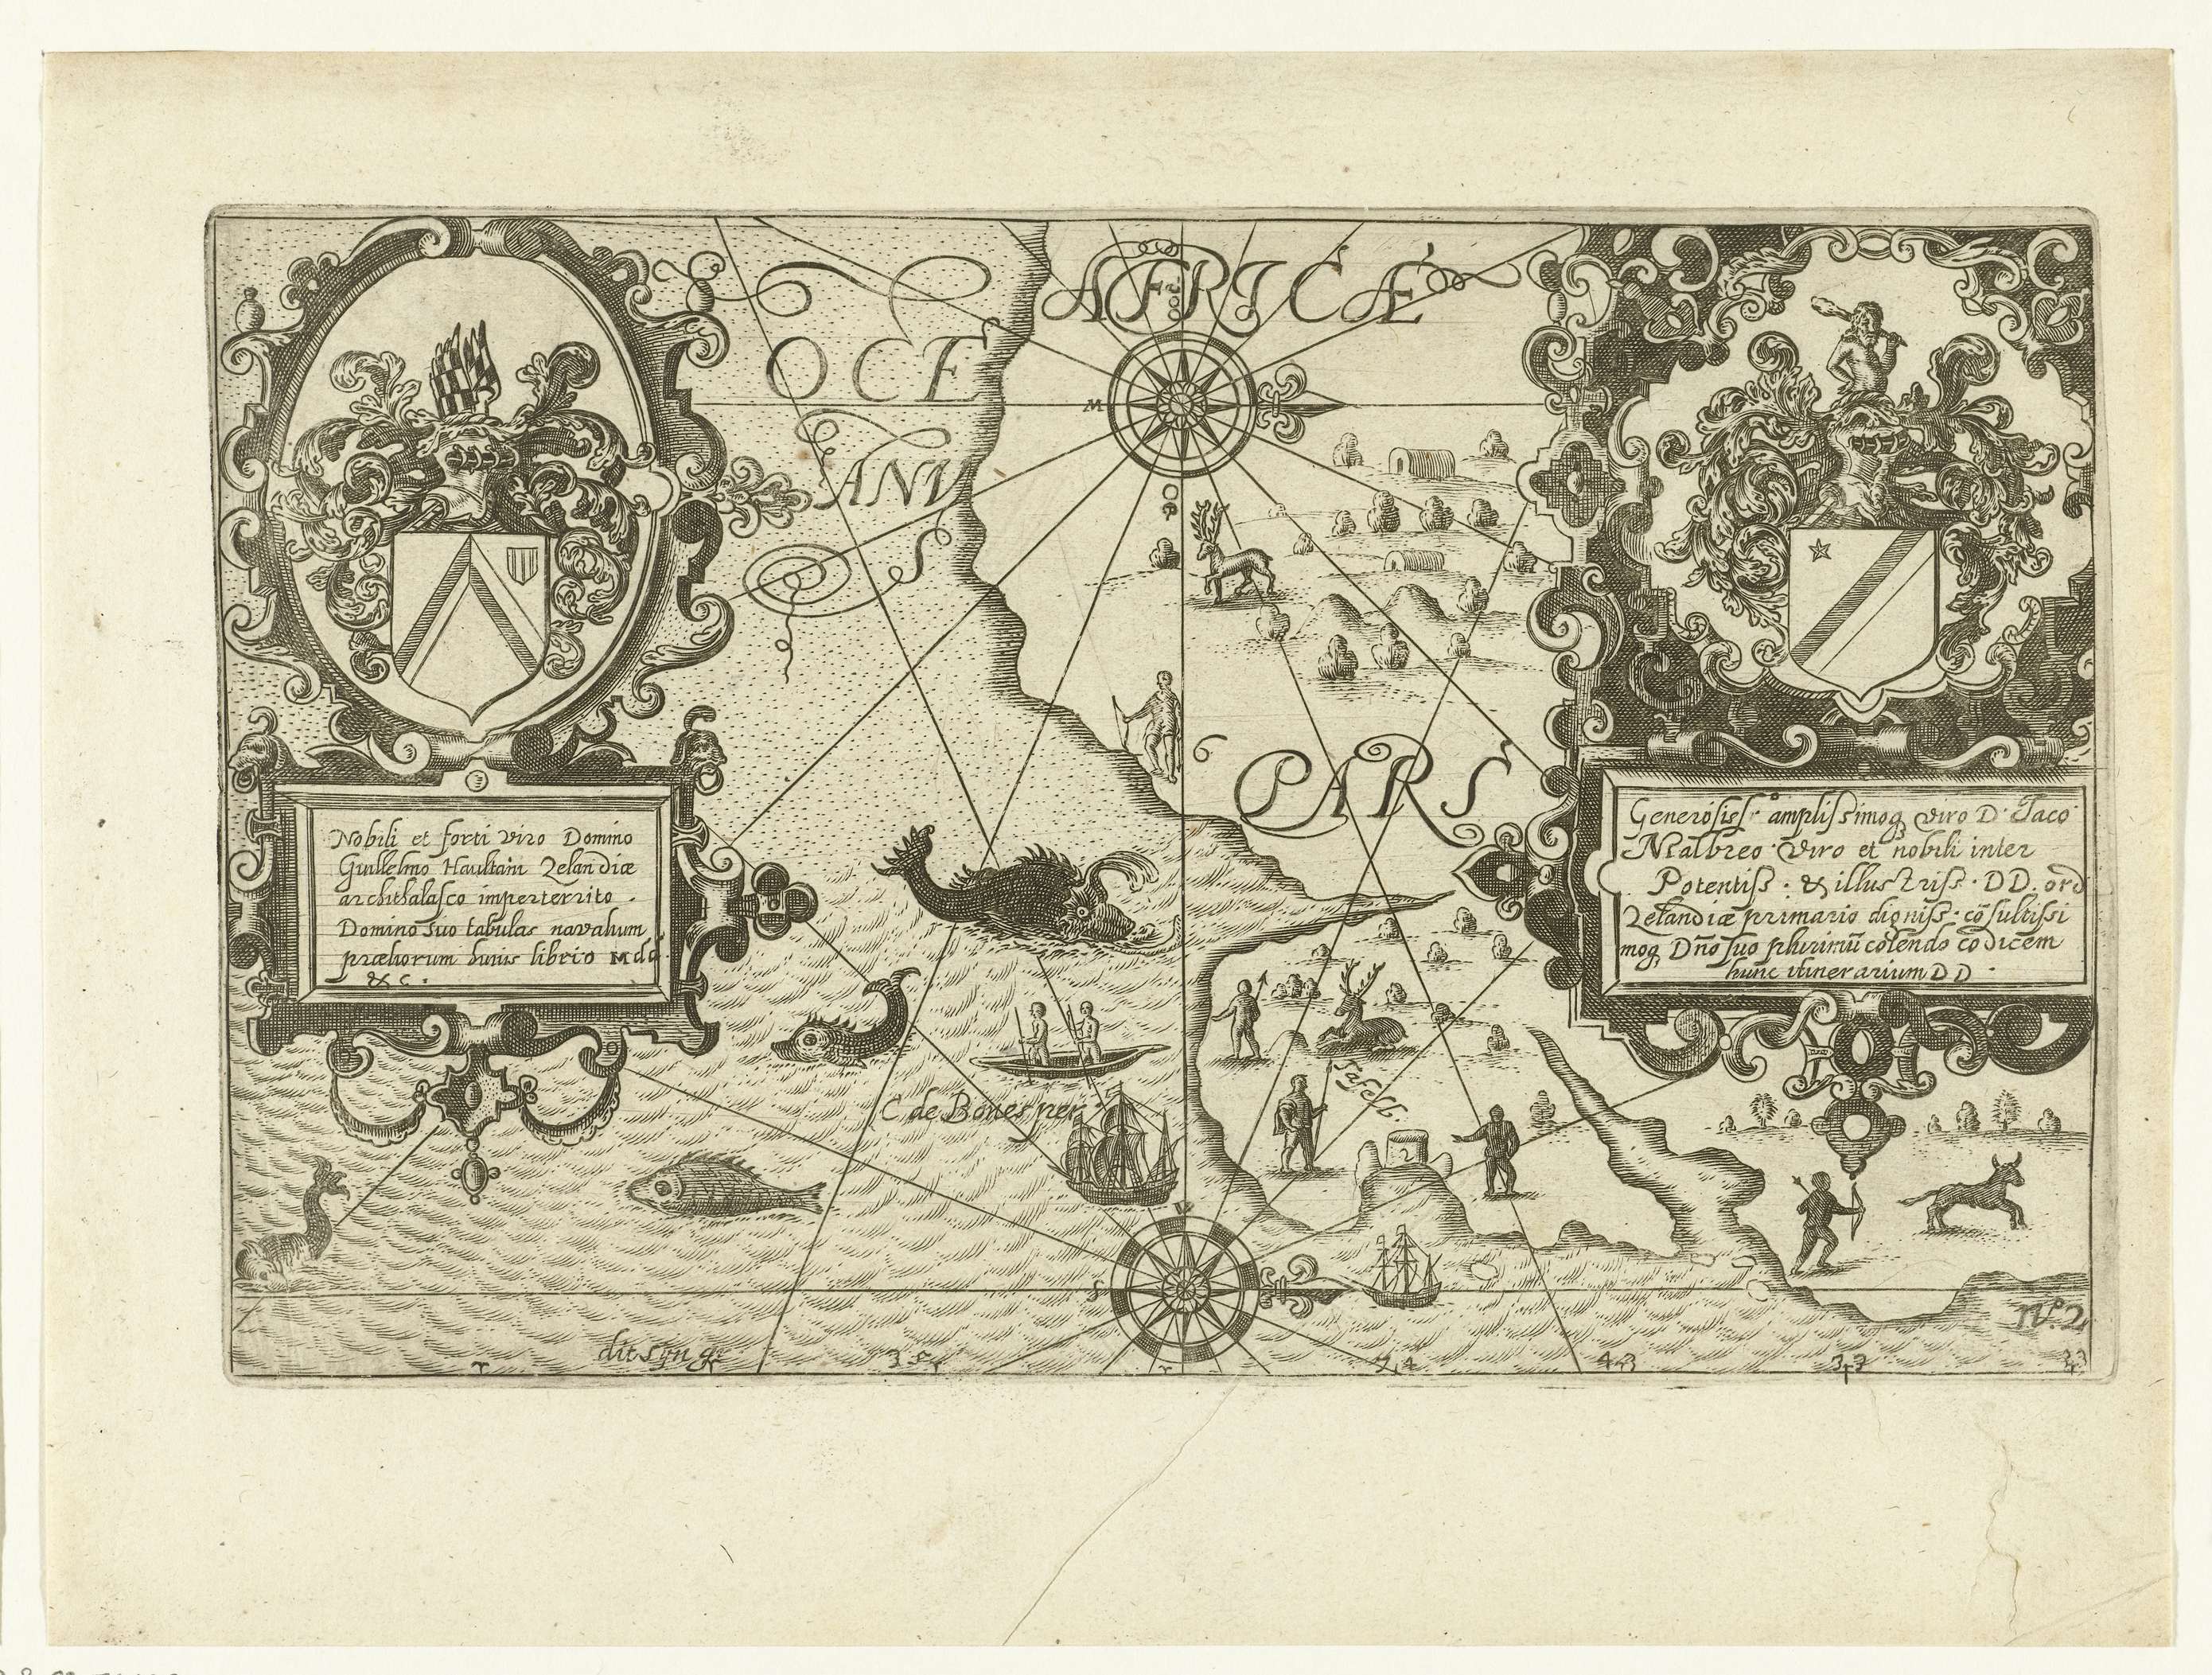 AFRICÆ
OCE
ANU
S
PARS
M
Nobili et forti viro Domino
Guillelmo Haultain Zelandiæ
archithalasco imperterrito.
Domino suo tabulas navalium
præliorum huius libri
&c.
Generosiss amplissimoq viro D. Jaco
Malbreo viro et nobili inter
Potentiss. & illustriss. DD. ord
Zelandiæ primario digniss. cōsultissi
moq Dño suo plurimū colendo codicem
hunc itinerarium DD.
C de Bones per
2
S
dit syn
No. 2
35
24
43
33